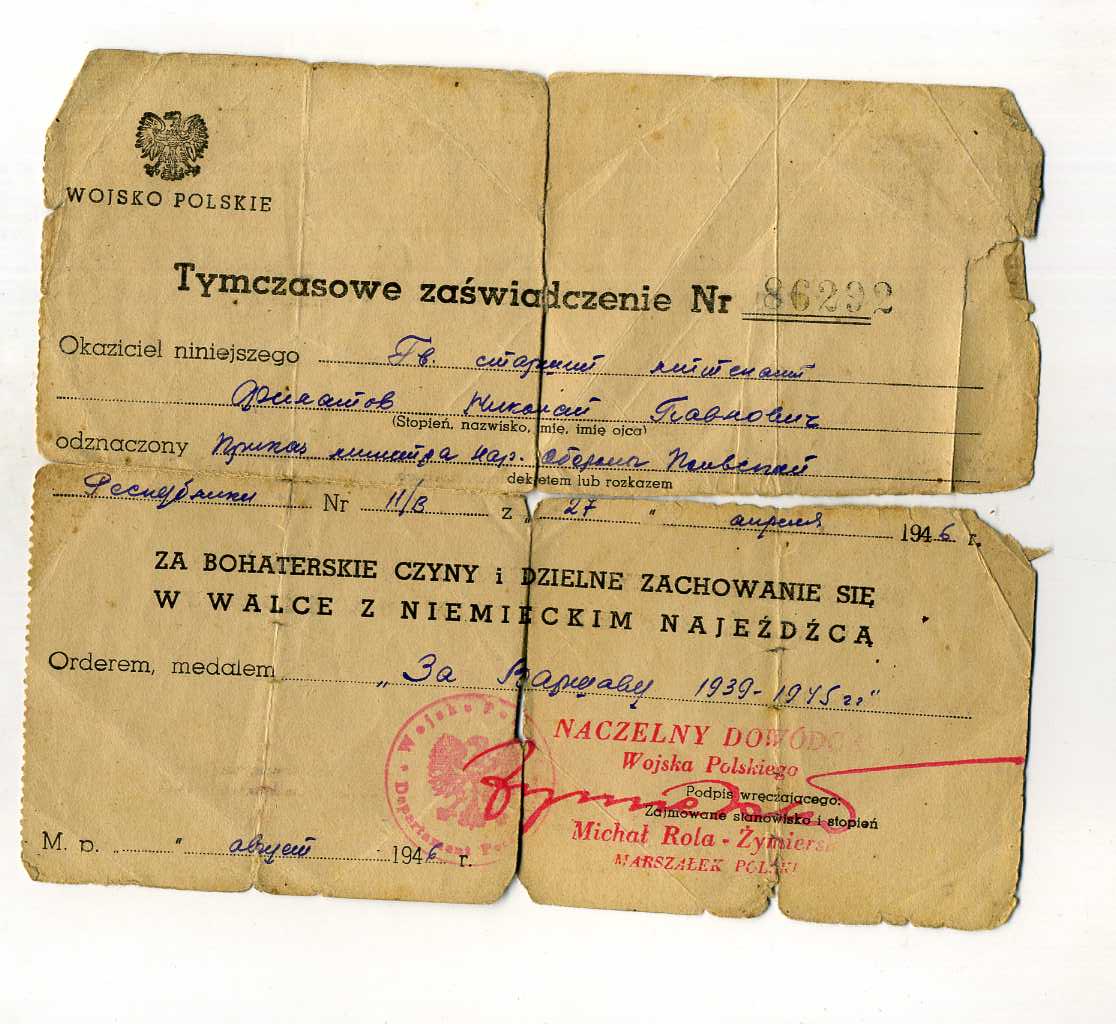 WOJSKO POLSKIE
Tymczasowe zaświadczenie Nr 86292
Okaziciel niniejszego Гв. старший лейтенант
Филатов Николай Павлович
(Stopień, nazwisko, imię, imię ojca)
odznaczony Приказ министра Нар. Обороны Польской
dekretem lub rozkazem
Республики Nr 11/В z „ 27 " апреля 1946 r.
ZA BOHATERSKIE CZYNY i DZIELNE ZACHOWANIE SIĘ
W WALCE Z NIEMIECKIM NAJEŹDŹCĄ
Orderem, medalem „За Варшаву 1939-1945 гг"
Wojska
Departament
NACZELNY DOWÓDCA
Wojska Polskiego
Podpis wręczającego:
Zajmowane stanowisko i stopień
Michał Rola - Żymierski
MARSZAŁEK POLSKI
M. p. „ " август 1946 r.